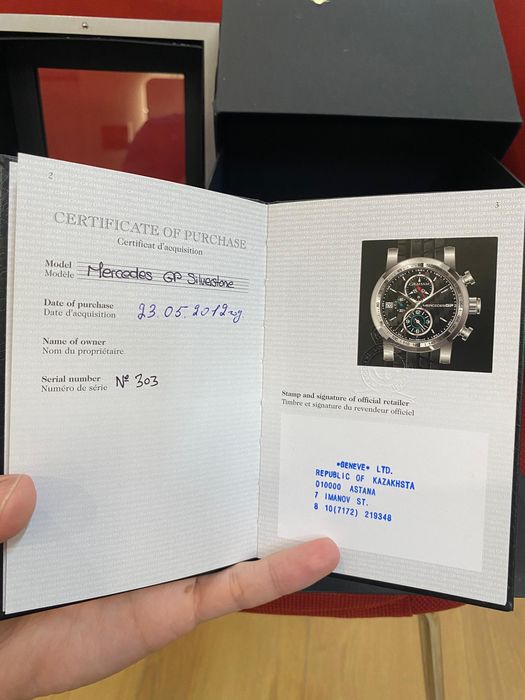 2
CERTIFICATE OF PURCHASE
Certificat d'acquisition
Model
Modèle
Mercedes GP Silverstone
Date of purchase
Date d'acquisition
23.05.2012
Name of owner
Nom du propriétaire
Serial number
Numéro de série
№ 303
3
GRAHAM
MERCEDES GP
Stamp and signature of official retailer
Timbre et signature du revendeur officiel
*GENEVE* LTD.
REPUBLIC OF KAZAKHSTA
010000 ASTANA
7 IMANOV ST.
8 10(7172) 219348